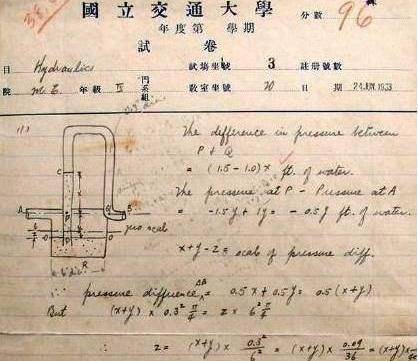 國立交通大學 分數 96
年度第 學期
試卷
目 Hydraulics 試場坐號 3 註册號數
院 M.E. 年級 IV 門系組 教室坐號 20 日期 24 JUN 1933
(1)
The difference in pressure between
P + Q
= (1.5 - 1.0) x ft. of water.
The pressure at P - Pressure at A
= -1.5y + 1y = -0.5y ft. of water.
x + y - z = scale of pressure diff.
C
A
B
P
Q
O
O
R
zero scale
6" dia
∴ pressure difference AB = 0.5x + 0.5y = 0.5(x+y)
But (x+y) × 0.3² π/4 = z × 6² π/4
∴ z = (x+y) × 0.3²/6² = (x+y) × 0.09/36 = (x+y) ×